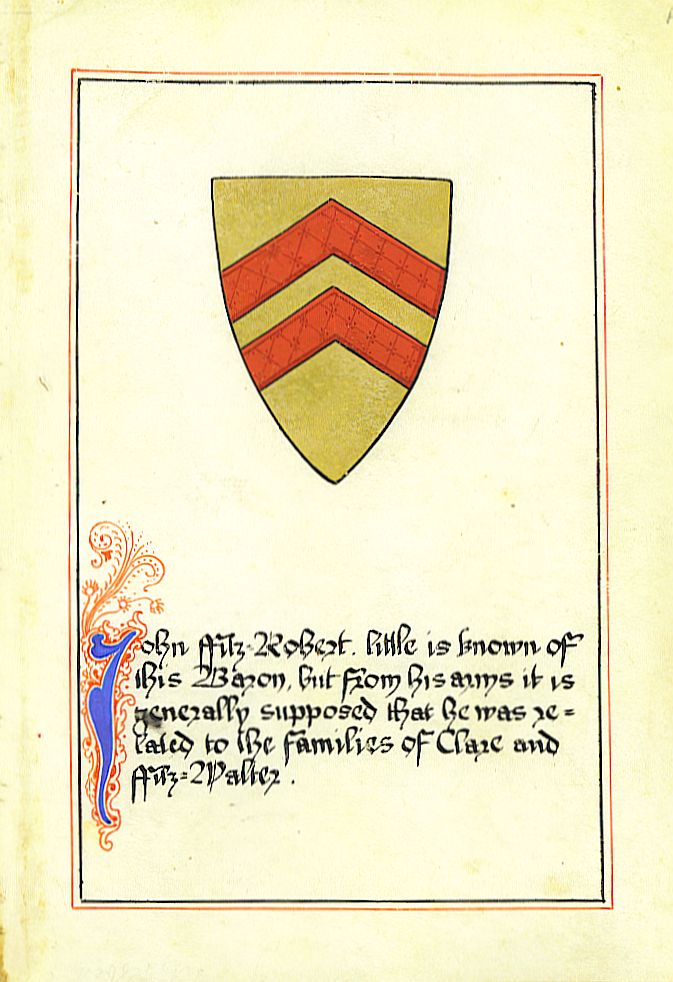 John ffitz-Robert. little is known of
this Baron, but from his arms it is
generally supposed that he was re=
lated to the families of Clare and
ffitz=Walter.